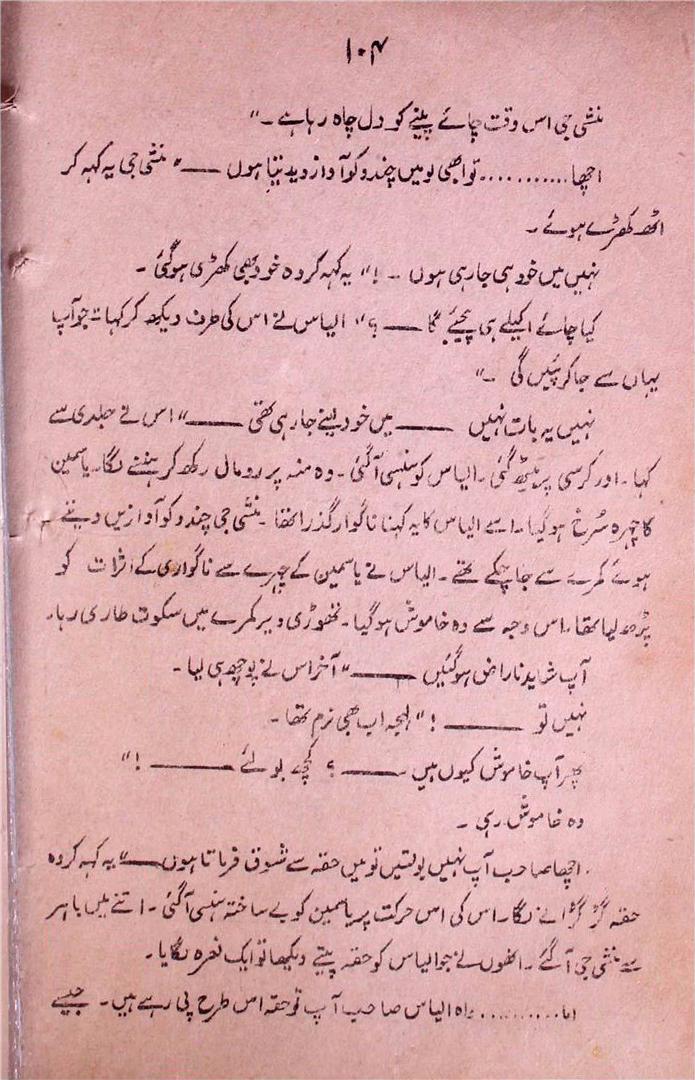 ۱۰۴
منشی جی اس وقت چائے پینے کو دل چاہ رہا ہے ۔"
اچھا ........... تو ابھی لو میں چندو کو آواز دیدیتا ہوں ——" منشی جی یہ کہہ کر
اٹھ کھڑے ہوئے ۔
نہیں میں خود ہی جا رہی ہوں ۔ !" یہ کہہ کر وہ خود بھی کھڑی ہو گئی ۔
کیا چائے اکیلے ہی پیجئے گا —— ؟" الیاس نے اس کی طرف دیکھ کر کہا " جو آپ
یہاں سے جا کر پئیں گی ۔"
نہیں یہ بات نہیں —— میں خود لینے جا رہی تھی ——" اس نے جلدی سے
کہا ۔ اور کرسی پر بیٹھ گئی ۔ الیاس کو ہنسی آ گئی ۔ وہ منہ پر رومال رکھ کر ہنسنے لگا ۔ یاسمین
کا چہرہ سُرخ ہو گیا ۔ اسے الیاس کا یہ کہنا ناگوار گذرا تھا ۔ منشی جی چندو کو آوازیں دیتے
ہوئے کمرے سے جا چکے تھے ۔ الیاس نے یاسمین کے چہرے سے ناگواری کے اثرات کو
پڑھ لیا تھا ۔ اس وجہ سے وہ خاموش ہو گیا ۔ تھوڑی دیر کمرے میں سکوت طاری رہا ۔
آپ شاید ناراض ہو گئیں ——" آخر اس نے پوچھ ہی لیا ۔
نہیں تو —— !" لہجہ اب بھی نرم تھا ۔
پھر آپ خاموش کیوں ہیں —— ؟ کچھ بولئے —— !"
وہ خاموش رہی ۔
اچھا صاحب آپ نہیں بولتیں تو میں حقہ سے شوق فرماتا ہوں ——" یہ کہہ کر وہ
حقہ گڑ گڑانے لگا ۔ اس کی اس حرکت پر یاسمین کو بے ساختہ ہنسی آ گئی ۔ اتنے میں باہر
سے منشی جی آ گئے ۔ انھوں نے جو الیاس کو حقہ پیتے دیکھا تو ایک نعرہ لگایا ۔
اما .......... واہ الیاس صاحب آپ تو حقہ اس طرح پی رہے ہیں ۔ جیسے